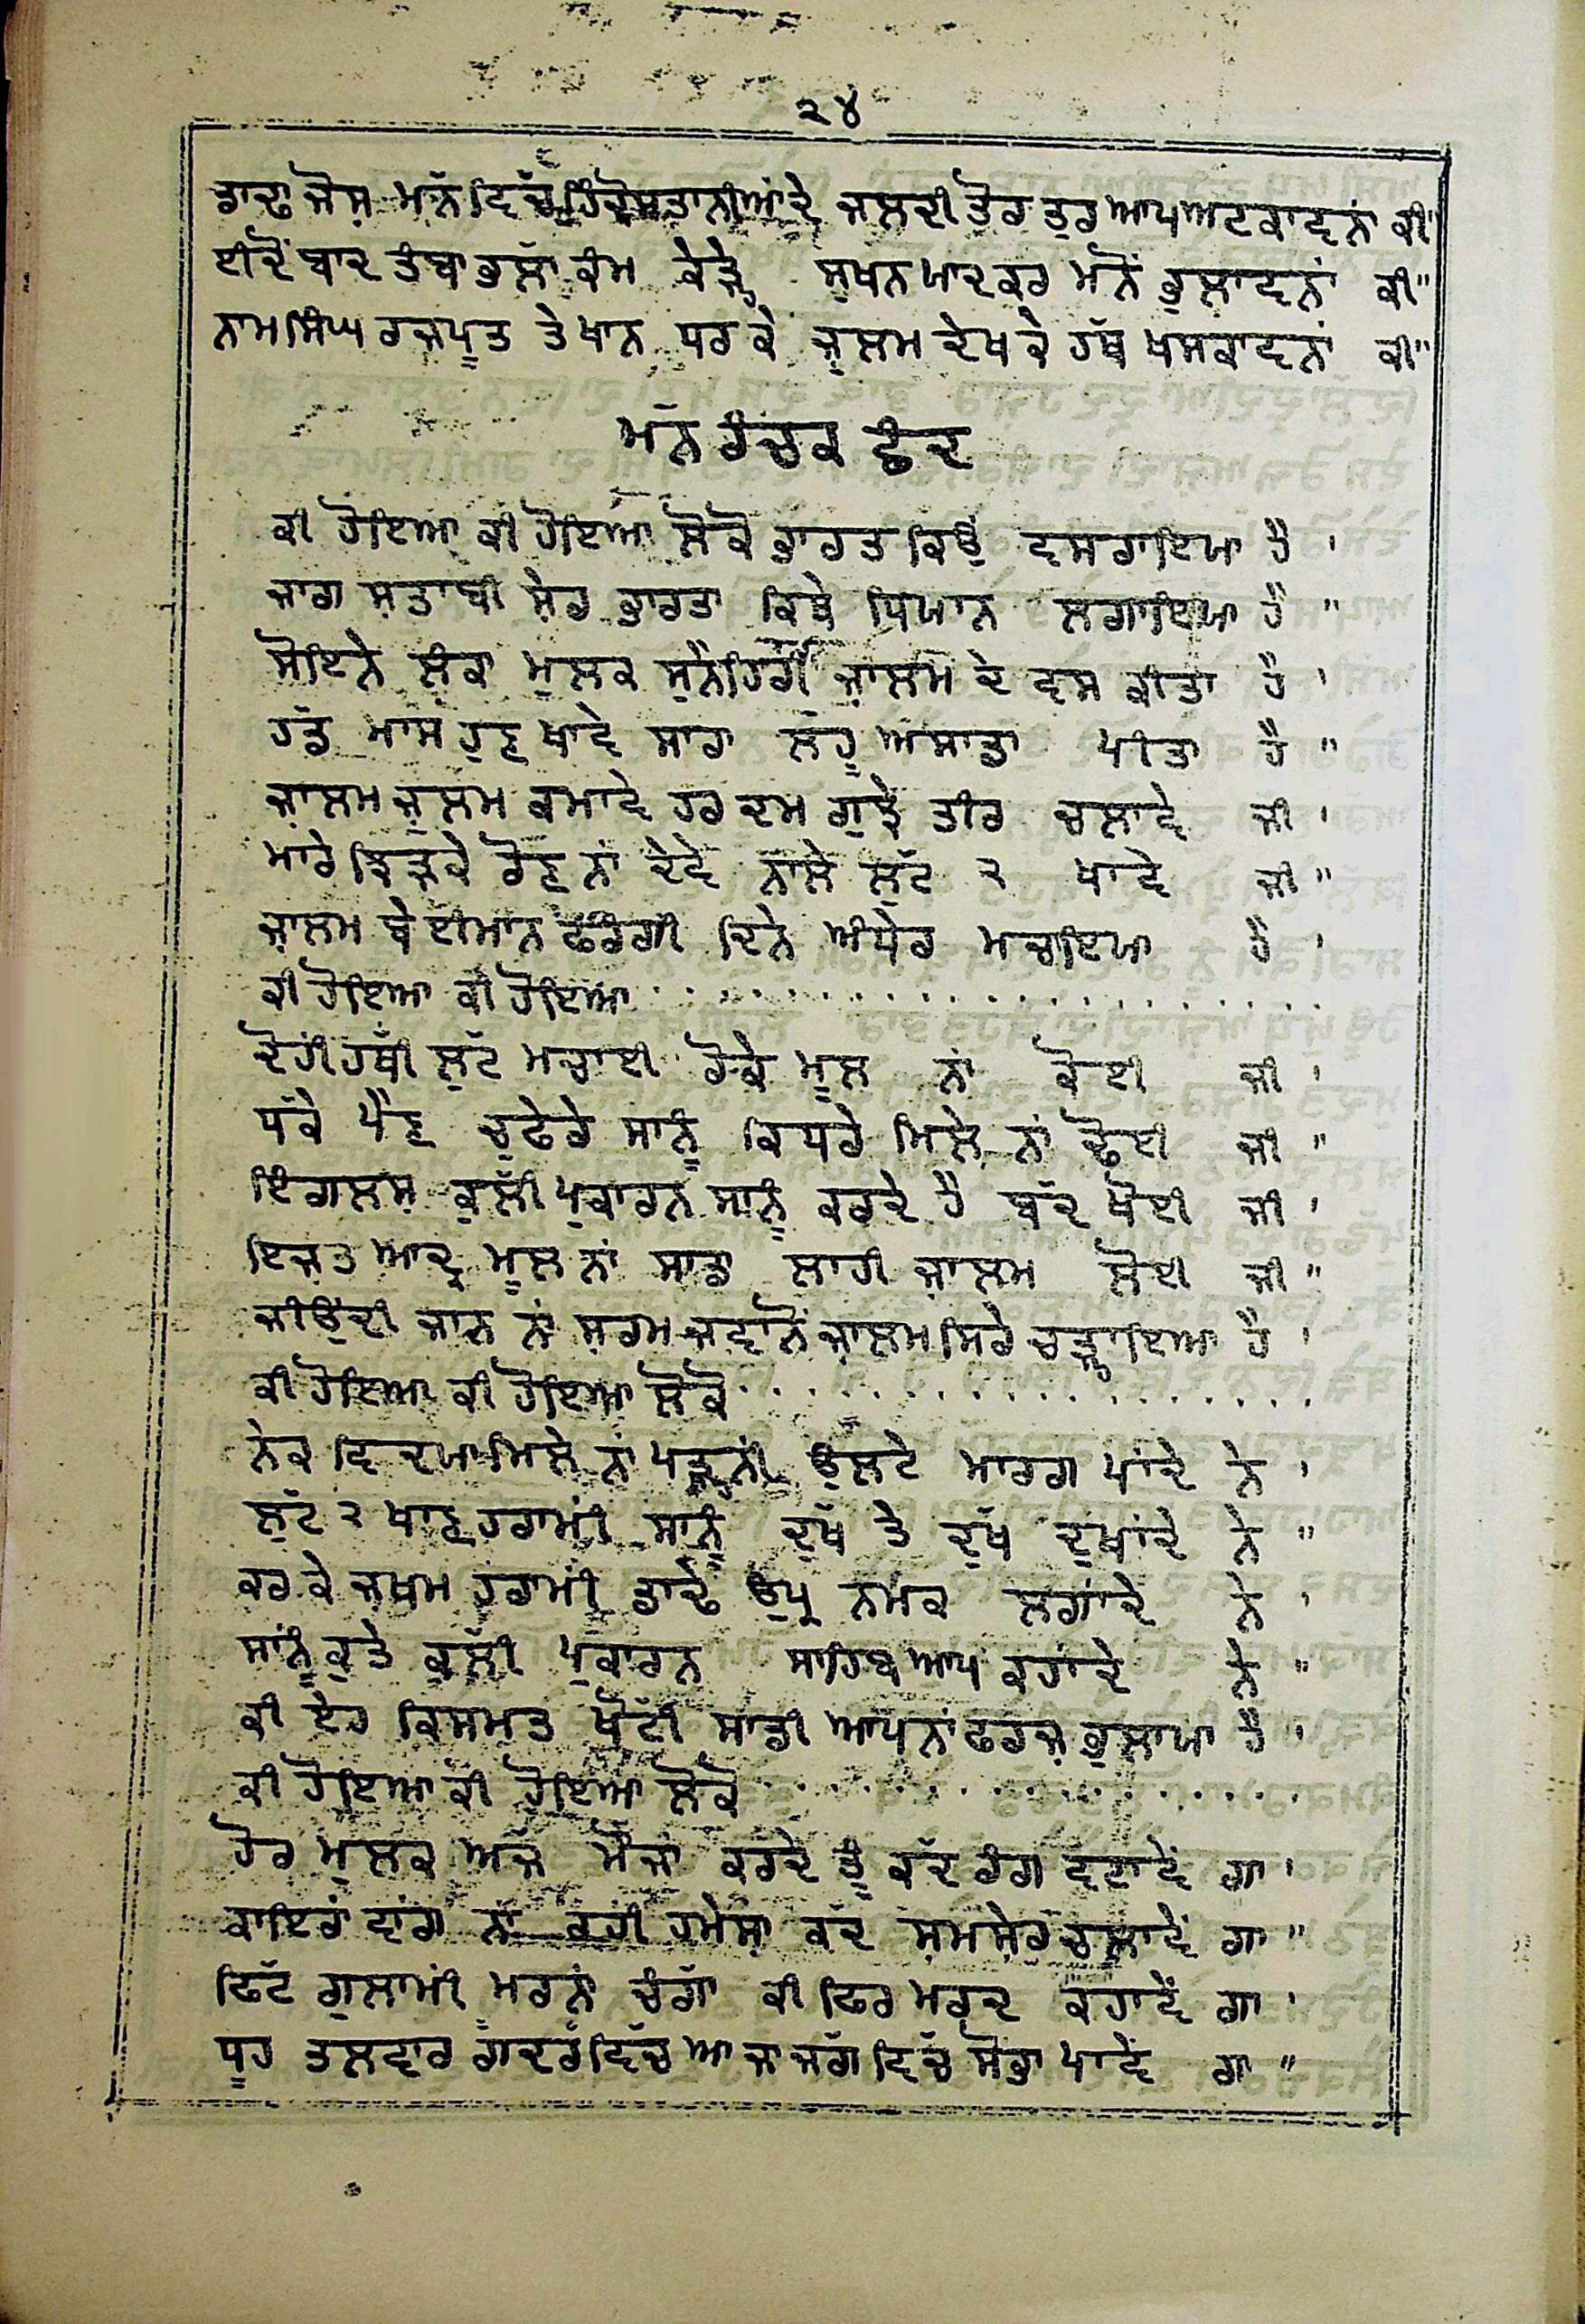 ੨੪
ਡਾਢਾ ਜੋਸ਼ ਮਨੱ ਵਿਚੱ ਹਿੰਦੋਸਤਾਨੀਆਂ ਦੇ ਜਲਦੀ ਤੋਰ ਤੁਰ ਆਪ ਅਟਕਾਵਨਾਂ ਕੀ"
ਈਦੋਂ ਬਾਦ ਤੰਬਾ ਭੁਲਾ ਕੰਮ ਕੇੜ੍ਹੇ ਸੁਖਨ ਯਾਦ ਕਰ ਮਨੋਂ ਭੁਲਾਵਨਾਂ ਕੀ"
ਨਾਮ ਸਿੰਘ ਰਜਪੂਤ ਤੇ ਖਾਨ ਧਰਕੇ ਜ਼ੁਲਮ ਦੇਖਕੇ ਹੱਥ ਖਸਕਾਵਨਾਂ ਕੀ"
ਮੱਨ ਰੰਚੁਕ ਛੰਦ
ਕੀ ਹੋਇਆ ਕੀ ਹੋਇਆ ਲੋਕੋ ਭਾਰਤ ਕਿਉਂ ਵਸਰਾਇਆ ਹੈ '
ਜਾਗ ਸ਼ਤਾਬੀ ਸ਼ੇਰ ਭਾਰਤਾ ਕਿਥੇ ਧਿਆਨ ਲਗਾਇਆ ਹੈ "
ਸੋਇਨੇ ਲੰਕਾ ਮੁਲਕ ਸੁਨੈਹਿਰੀ ਜ਼ਾਲਮ ਦੇ ਵਸ ਕੀਤਾ ਹੈ '
ਹੱਡ ਮਾਸ ਹੁਣ ਖਾਵੇ ਸਾਰਾ ਲਹੂ ਅਸਾਡਾ ਪੀਤਾ ਹੈ "
ਜ਼ਾਲਮ ਜ਼ੁਲਮ ਕਮਾਵੇ ਹਰ ਦਮ ਗੁਝੇ ਤੀਰ ਚਲਾਵੇ ਜੀ '
ਮਾਰੇ ਝਿੜਕੇ ਰੋਣ ਨਾਂ ਦੇਵੇ ਨਾਲੇ ਲੁੱਟ ੨ ਖਾਵੇ ਜੀ "
ਜ਼ਾਲਮ ਬੇਈਮਾਨ ਫਰੰਗੀ ਦਿਨੇ ਅੰਧੇਰ ਮਚਾਇਆ ਹੈ '
ਕੀ ਹੋਇਆ ਕੀ ਹੋਇਆ . . . . . . . . . . . . . . . . . . . .
ਦੋਹੀਂ ਹਥੀਂ ਲੁੱਟ ਮਚਾਈ ਰੋਕੇ ਮੂਲ ਨਾਂ ਕੋਈ ਜੀ '
ਧੱਕੇ ਪੈਣ ਚੁਫੇਰੇ ਸਾਨੂੰ ਕਿਧਰੇ ਮਿਲੇ ਨਾਂ ਢੋਈ ਜੀ "
ਇੰਗਲਸ਼ ਕੁਲੀ ਪੁਕਾਰਨ ਸਾਨੂੰ ਕਰਦੇ ਹੈ ਬੱਦ ਖੋਈ ਜੀ '
ਇਜ਼ਤ ਆਦ੍ਰ ਮੂਲ ਨਾਂ ਸਾਡਾ ਲਾਹੀ ਜ਼ਾਲਮ ਲੋਈ ਜੀ "
ਜੀਉਂਦੀ ਜਾਨ ਨਾਂ ਸ਼ਰਮ ਜਵਾਨੋਂ ਜ਼ਾਲਮ ਸਿਰੇ ਚੜ੍ਹਾਇਆ ਹੈ '
ਕੀ ਹੋਇਆ ਕੀ ਹੋਇਆ ਲੋਕੋ . . . . . . . . . . . . . . . . .
ਨੇਕ ਵਿਦਯਾ ਮਿਲੇ ਨਾਂ ਪੜ੍ਹਨੀ ਉਲਟੇ ਮਾਰਗ ਪਾਂਦੇ ਨੇ '
ਲੁੱਟ ੨ ਖਾਣ ਹਰਾਮੀ ਸਾਨੂੰ ਦੁੱਖ ਤੇ ਦੁੱਖ ਦੁਖਾਂਦੇ ਨੇ "
ਕਰਕੇ ਜ਼ਖਮ ਹਰਾਮੀਂ ਡਾਢੇ ਉਪ੍ਰ ਨਮਕ ਲਗਾਂਦੇ ਨੇ '
ਸਾਨੂੰ ਕੁਤੇ ਕੁਲੀ ਪੁਕਾਰਨ ਸਾਹਿਬ ਆਪ ਕਹਾਂਦੇ ਨੇ "
ਕੀ ਏਹ ਕਿਸਮਤ ਖੋਟੀ ਸਾਡੀ ਆਪਨਾਂ ਫਰਜ਼ ਭੁਲਾਯਾ ਹੈ '
ਕੀ ਹੋਇਆ ਕੀ ਹੋਇਆ ਲੋਕੋ . . . . . . . . . . . . . . . .
ਹੋਰ ਮੁਲਕ ਅੱਜ ਮੌਜਾਂ ਕਰਦੇ ਤੂੰ ਕੱਦ ਰੰਗ ਵਟਾਵੇਂ ਗਾ '
ਕਾਇਰਾਂ ਵਾਂਗ ਨਾਂ ਰਹੀਂ ਹਮੇਸ਼ਾ ਕੱਦ ਸ਼ਮਸ਼ੇਰ ਚਲਾਵੇਂ ਗਾ "
ਫਿੱਟ ਗੁਲਾਮੀਂ ਮਰਨਾਂ ਚੰਗਾ ਕੀ ਫਿਰ ਮਰਦ ਕਹਾਵੇਂ ਗਾ '
ਧੂਹ ਤਲਵਾਰ ਗਦਰ ਵਿੱਚ ਆ ਜਾ ਜੱਗ ਵਿੱਚ ਸੋਭਾ ਪਾਵੇਂ ਗਾ "